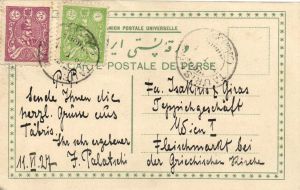 UNION POSTALE UNIVERSELLE
CARTE POSTALE DE PERSE
Sende Ihnen die
herzl. Grüsse aus
Täbris
Ihr sehr ergebener
11. VI 27 F. Palatsch
Fa. Isakrios & Ojras
Teppichgeschäft
Wien I
Fleischmarkt bei
der Griechischen Kirche